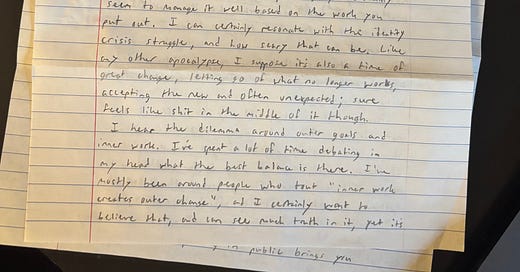 seem to manage it well based on the work you
put out. I can certainly resonate with the identity
crisis struggle, and how scary that can be. Like
any other apocalypse, I suppose it's also a time of
great change, letting go of what no longer works,
accepting the new and often unexpected; sure
feels like shit in the middle of it though.
I hear the dilemma around outer goals and
inner work. I've spent a lot of time debating in
my head what the best balance is there. I've
mostly been around people who tout "inner work
creates outer change", and I certainly want to
believe that, and can see much truth in it, yet its
in public brings you